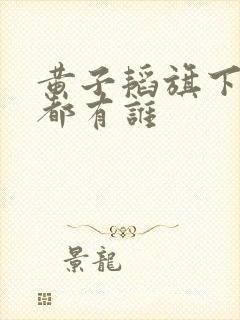 黄子韬旗下
都有誰
景龍